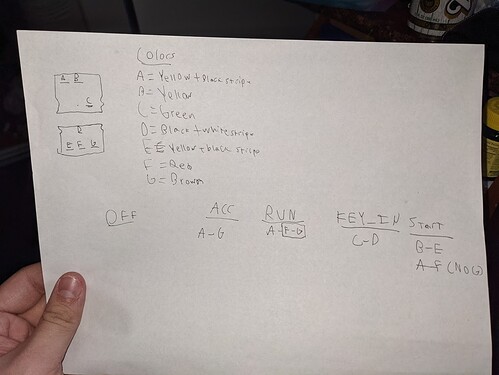 Colors
A B
C
A = Yellow + black stripe
B = Yellow
C = Green
D = Black + white stripe
E = Yellow + black stripe
F = Red
G = Brown
D
E F G
OFF
ACC
A-G
RUN
A-F-G
KEY_IN
C-D
Start
B-E
A-F (NO G)